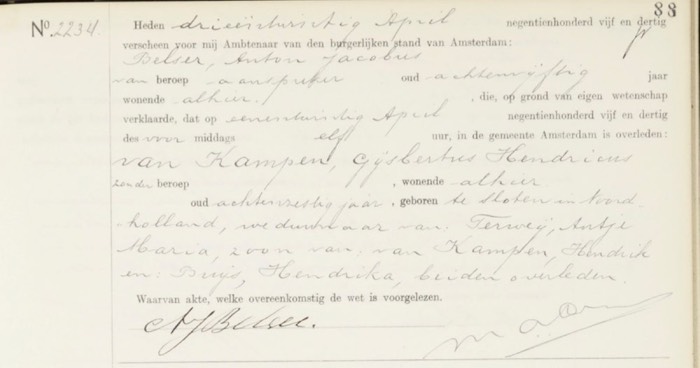 88
No. 2234. Heden drieentwintig April negentienhonderd vijf en dertig
verscheen voor mij Ambtenaar van den burgerlijken stand van Amsterdam:
Belser, Anton Jacobus
van beroep aanspreker oud achtenvijftig jaar
wonende alhier, , die, op grond van eigen wetenschap
verklaarde, dat op eenentwintig April negentienhonderd vijf en dertig
des voor middags elf uur, in de gemeente Amsterdam is overleden:
van Kampen, Gijsbertus Hendricus
zonder beroep , wonende alhier
oud achtenzestig jaar, geboren te Sloten in Noord-
holland, weduwnaar van Terweij, Antje
Maria, zoon van: van Kampen, Hendrik
en: Buijs, Hendrika, beiden overleden.
Waarvan akte, welke overeenkomstig de wet is voorgelezen.
AJBelser.